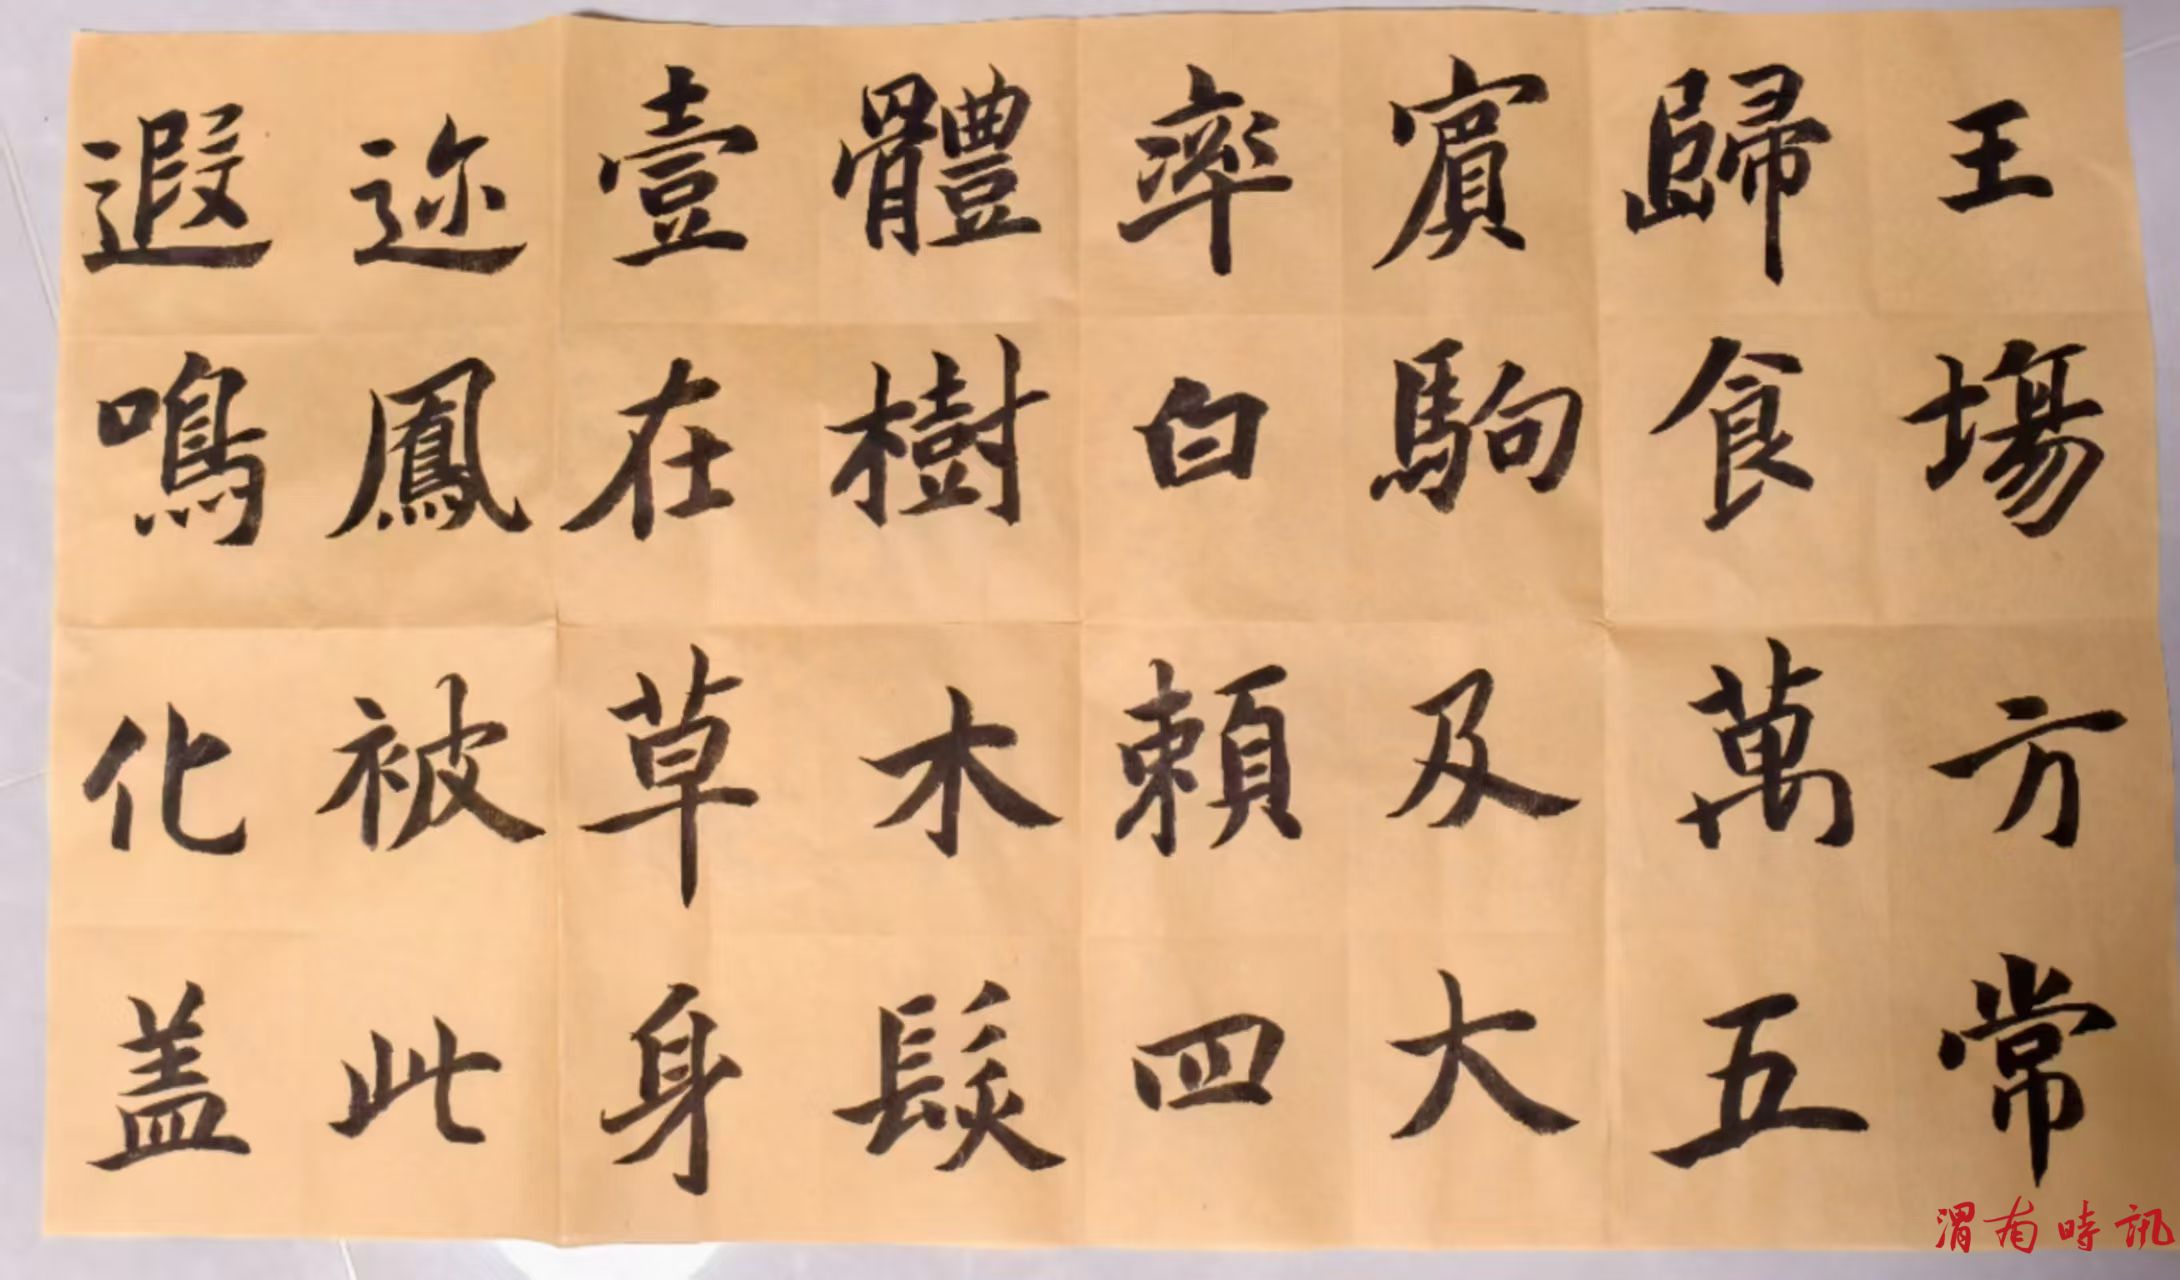 遐迩壹體率賔歸王
鳴鳳在樹白駒食場
化被草木頼及萬方
盖此身髮四大五常
渭南時訊